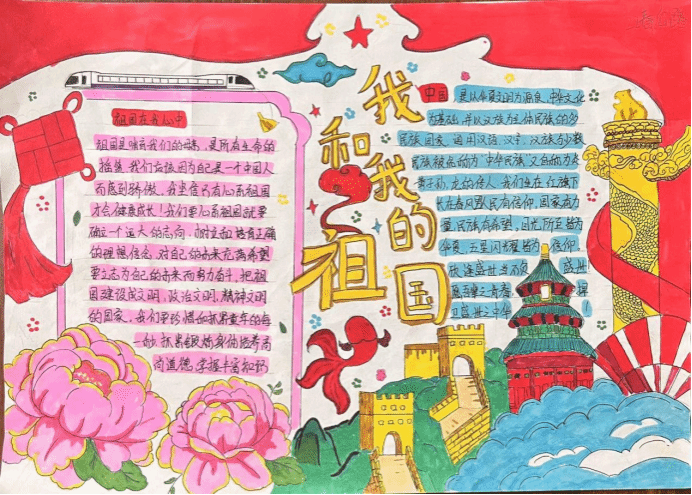 我和我的祖国
祖国在我心中
祖国是哺育我们的母亲，是所有生命的
摇篮，我们应该因为自己是一个中国人
而感到骄傲。我坚信只有心系祖国
才会健康成长！我们要心系祖国就要
确立一个远大的志向，树立和培育正确
的理想信念，对自己的未来充满希望
要立志为自己的未来而努力奋斗，把祖
国建设成文明，政治文明，精神文明
的国家，我们要珍惜和抓紧童年的每
一
尚道德，掌握丰富知识
中国 是以华夏文明为源泉，中华文化
为基础，并以汉族为主体民族的多
民族国家，通用汉语、汉字，汉族与少数
民族被统称为"中华民族"又自称为炎
黄子孙，龙的传人 我们生在红旗下
长在春风里，民有信仰，国家有力
量，民族有希望，目光所至皆为
华夏，五星闪耀皆为信仰，
盛世